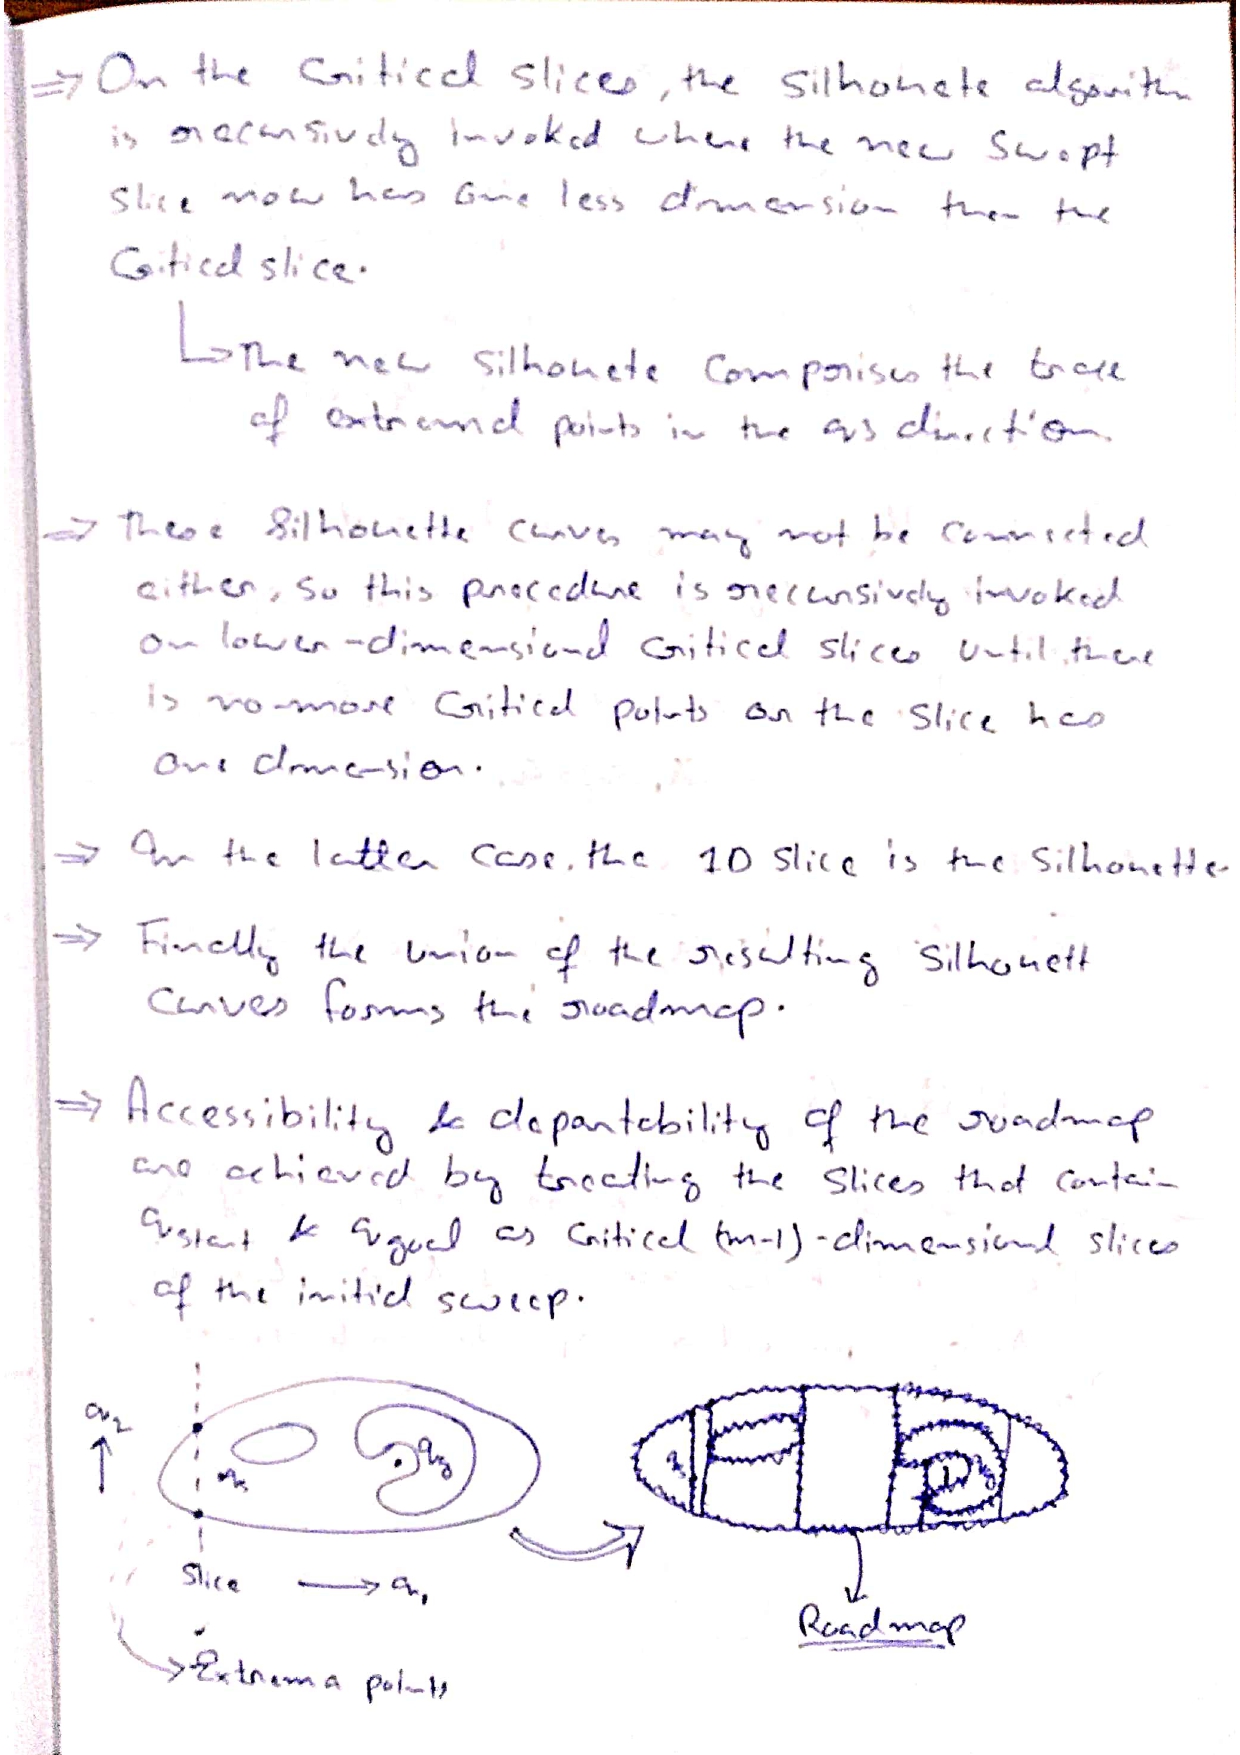 ⇒ On the Critical slices, the Silhouete algorithm
is recursively invoked where the new Swept
Slice now has one less dimension than the
Critical slice.
↳ The new Silhouete Comprises the trace
of extremal points in the q3 direction.
⇒ These Silhouette curves may not be connected
either, so this procedure is recursively invoked
on lower-dimensional critical slices until there
is no-more Critical points or the Slice has
one dimension.
⇒ In the latter case, the 1D Slice is the Silhouette.
⇒ Finally the union of the resulting Silhouett
curves forms the roadmap.
⇒ Accessibility & departability of the roadmap
are achieved by treating the slices that contain
qstart & qgoal as critical (m-1)-dimensional slices
of the initial sweep.
q2
qs
qg
qs
qg
Slice → q1
Roadmap
Extrema points